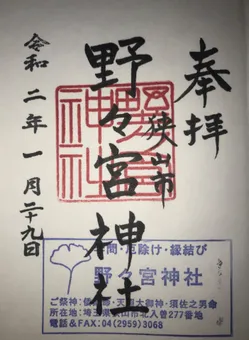 奉拝
狭山市
野々宮神社
令和二年一月二十九日
野々宮
神社
厄除け・縁結び
野々宮神社
ご祭神：
天照大御神・須佐之男命
所在地：埼玉県狭山市北入曽277番地
電話&FAX：04(2959)3068